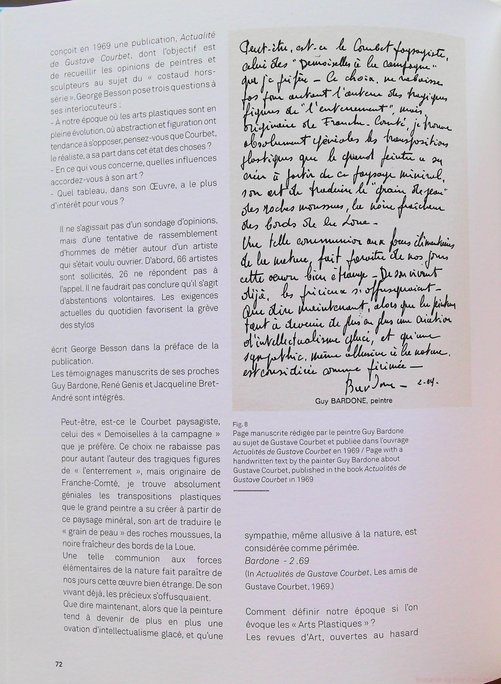 conçoit en 1969 une publication, Actualité
de Gustave Courbet, dont l'objectif est
de recueillir les opinions de peintres et
sculpteurs au sujet du « costaud hors-
série ». George Besson pose trois questions à
ses interlocuteurs :
- À notre époque où les arts plastiques sont en
pleine évolution, où abstraction et figuration ont
tendance à s'opposer, pensez-vous que Courbet,
le réaliste, a sa part dans cet état des choses ?
- En ce qui vous concerne, quelles influences
accordez-vous à son art ?
- Quel tableau, dans son Œuvre, a le plus
d'intérêt pour vous ?
Il ne s'agissait pas d'un sondage d'opinions,
mais d'une tentative de rassemblement
d'hommes de métier autour d'un artiste
qui s'était voulu ouvrier. D'abord, 66 artistes
sont sollicités, 26 ne répondent pas à
l'appel. Il ne faudrait pas conclure qu'il s'agit
d'abstentions volontaires. Les exigences
actuelles du quotidien favorisent la grève
des stylos
écrit George Besson dans la préface de la
publication.
Les témoignages manuscrits de ses proches
Guy Bardone, René Genis et Jacqueline Bret-
André sont intégrés.
Peut-être, est-ce le Courbet paysagiste,
celui des « Demoiselles à la campagne »
que je préfère. Ce choix ne rabaisse pas
pour autant l'auteur des tragiques figures
de « l'enterrement », mais originaire de
Franche-Comté, je trouve absolument
géniales les transpositions plastiques
que le grand peintre a su créer à partir de
ce paysage minéral, son art de traduire le
« grain de peau » des roches moussues, la
noire fraîcheur des bords de la Loue.
Une telle communion aux forces
élémentaires de la nature fait paraître de
nos jours cette œuvre bien étrange. De son
vivant déjà, les précieux s'offusquaient.
Que dire maintenant, alors que la peinture
tend à devenir de plus en plus une
ovation d'intellectualisme glacé, et qu'une
72
Peut-être, est-ce le Courbet paysagiste,
celui des "Demoiselles à la campagne"
que je préfère - Ce choix, ne rabaisse
pas pour autant l'auteur des tragiques
figures de "l'enterrement", mais
originaire de Franche-Comté, je trouve
absolument géniales les transpositions
plastiques que le grand peintre a su
créer à partir de ce paysage minéral,
son art de traduire le "grain de peau"
des roches moussues, la noire fraîcheur
des bords de la Loue -
Une telle communion aux forces élémentaires
de la nature, fait paraître de nos jours
cette œuvre bien étrange - De son vivant
déjà, les précieux s'offusquaient -
Que dire maintenant, alors que la peinture
tend à devenir de plus en plus une
d'intellectualisme glacé, et qu'une
sympathie, même allusive à la nature,
est considérée comme périmée -
Bardone - 2.69.
Guy BARDONE, peintre
Fig. 8
Page manuscrite rédigée par le peintre Guy Bardone
au sujet de Gustave Courbet et publiée dans l'ouvrage
Actualités de Gustave Courbet en 1969 / Page with a
handwritten text by the painter Guy Bardone about
Gustave Courbet, published in the book Actualités de
Gustave Courbet in 1969
sympathie, même allusive à la nature, est
considérée comme périmée.
Bardone - 2 .69
(In Actualités de Gustave Courbet, Les amis de
Gustave Courbet, 1969.)
Comment définir notre époque si l'on
évoque les « Arts Plastiques » ?
Les revues d'Art, ouvertes au hasard